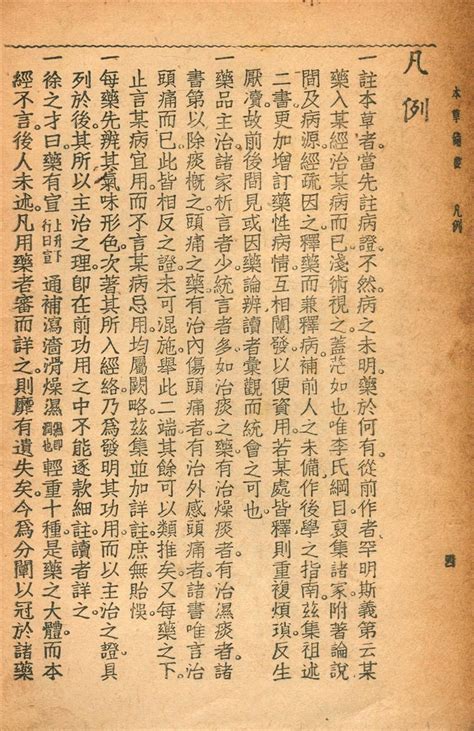 本草備要　凡例
凡例
一註本草者當先註病證不然病之未明藥於何有從前作者罕明斯義第云某
藥入某經治某病而已淺術視之蓋茫如也唯李氏綱目裒集諸家附著論說
間及病源經疏因之釋藥而兼釋病補前人之未備作後學之指南茲集祖述
二書更加增訂藥性病情互相闡發以便資用若某處皆釋則重複煩瑣反生
厭瀆故前後間見或因藥論辨讀者彙觀而統會之可也
一藥品主治諸家析言者少統言者多如治痰之藥有治燥痰者有治濕痰者諸
書第以除痰概之頭痛之藥有治內傷頭痛者有治外感頭痛者諸書唯言治
頭痛而已此皆相反之證未可混施舉此二端其餘可以類推矣又每藥之下
止言某病宜用而不言某病忌用均屬闕略茲集並加詳註庶無貽悞
一每藥先辨其氣味形色次著其所入經絡乃為發明其功用而以主治之證具
列於後其所以主治之理即在前功用之中不能逐款細註讀者詳之
一徐之才曰藥有宣上升下行曰宣通補瀉濇滑燥濕濕即潤也輕重十種是藥之大體而本
經不言後人未述凡用藥者審而詳之則靡有遺失矣今為分闡以冠於諸藥
四